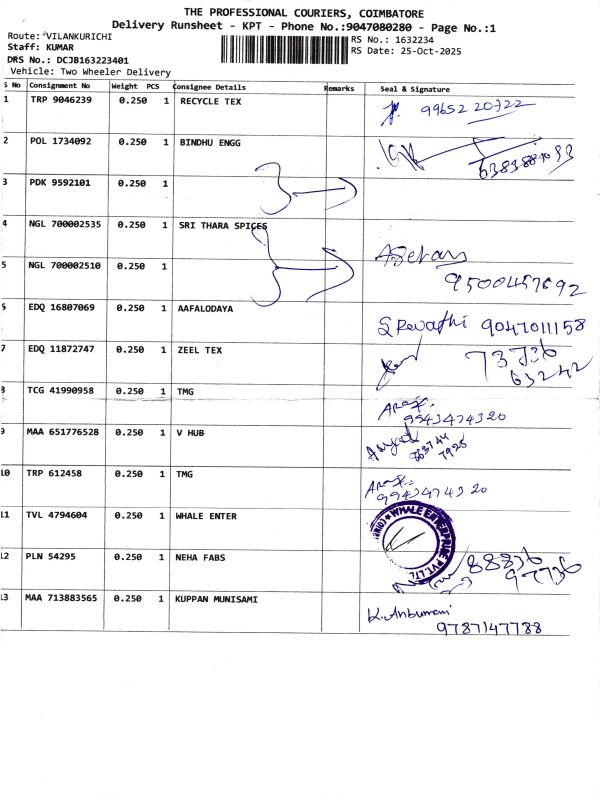 THE PROFESSIONAL COURIERS, COIMBATORE
Delivery Runsheet - KPT - Phone No.:9047080280 - Page No.:1
Route: VILANKURICHI
RS No.: 1632234
Staff: KUMAR
RS Date: 25-Oct-2025
DRS No.: DCJB163223401
Vehicle: Two Wheeler Delivery
S No Consignment No Weight PCS Consignee Details Remarks Seal & Signature
1 TRP 9046239 0.250 1 RECYCLE TEX
99652 20722
2 POL 1734092 0.250 1 BINDHU ENGG
3 PDK 9592101 0.250 1
4 NGL 700002535 0.250 1 SRI THARA SPICES
5 NGL 700002510 0.250 1
9500457692
6 EDQ 16807069 0.250 1 AAFALODAYA
S Revathi 9047011158
7 EDQ 11872747 0.250 1 ZEEL TEX
73736
63242
8 TCG 41990958 0.250 1 TMG
9943474320
9 MAA 651776528 0.250 1 V HUB
10 TRP 612458 0.250 1 TMG
9943474320
11 TVL 4794604 0.250 1 WHALE ENTER
WHALE ENTERPRISE PVT. LTD
12 PLN 54295 0.250 1 NEHA FABS
88836
97736
13 MAA 713883565 0.250 1 KUPPAN MUNISAMI
K. Anbumani
9787147788